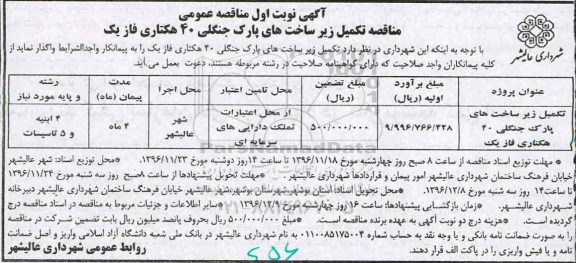 آگهی نوبت اول مناقصه عمومی
مناقصه تکمیل زیر ساخت های پارک جنگلی ۴۰ هکتاری فاز یک
شهرداری عالیشهر
با توجه به اینکه این شهرداری در نظر دارد تکمیل زیر ساخت های پارک جنگلی ۴۰ هکتاری فاز یک را به پیمانکار واجدالشرایط واگذار نماید از
کلیه پیمانکاران واجد صلاحیت که دارای گواهینامه صلاحیت در رشته مربوطه هستند، دعوت بعمل می آید.
عنوان پروژه | مبلغ برآورد اولیه (ریال) | مبلغ تضمین (ریال) | محل تامین اعتبار | محل اجرا | مدت پیمان (ماه) | رشته و پایه مورد نیاز
تکمیل زیر ساخت های پارک جنگلی ۴۰ هکتاری فاز یک | ۹/۹۹۶/۷۶۶/۴۲۸ | ۵۰۰/۰۰۰/۰۰۰ | از محل اعتبارات تملک دارایی های سرمایه ای | شهر عالیشهر | ۴ ماه | ۴ ابنیه و ۵ تاسیسات
* مهلت توزیع اسناد مناقصه از ساعت ۸ صبح روز چهارشنبه مورخ ۱۳۹۶/۱۱/۱۸ تا ساعت ۱۴ روز دوشنبه مورخ ۱۳۹۶/۱۱/۲۳ * محل توزیع اسناد شهر عالیشهر
خیابان فرهنگ ساختمان شهرداری عالیشهر امور پیمان و قراردادها شهرداری عالیشهر * مهلت تحویل پیشنهادها از ساعت ۸ صبح روز سه شنبه مورخ ۱۳۹۶/۱۱/۲۴
تا ساعت ۱۴ روز سه شنبه مورخ ۱۳۹۶/۱۲/۸ * محل تحویل اسناد استان بوشهر شهرستان بوشهر شهر عالیشهر خیابان فرهنگ ساختمان شهرداری عالیشهر دبیرخانه
شهرداری عالیشهر. * زمان بازگشایی پیشنهادها: ساعت ۱۶ روز چهارشنبه مورخ ۱۳۹۶/۱۲/۹ * سایر اطلاعات و جزئیات مربوط به مناقصه در اسناد مناقصه درج
گردیده است. * هزینه درج دو نوبت آگهی به عهده برنده مناقصه است. * مبلغ ۵۰۰/۰۰۰/۰۰۰ ریال بحروف پانصد میلیون ریال بابت تضمین شرکت در مناقصه
را به صورت ضمانت نامه بانکی و یا وجه نقد به حساب شماره ۰۱۱۰۰۸۵۱۷۵۰۰۴ به نام شهرداری عالیشهر در بانک ملی شعبه دانشگاه آزاد اسلامی واریز و اصل ضمانت
نامه و یا فیش واریزی را در پاکت الف قرار دهند.
روابط عمومی شهرداری عالیشهر